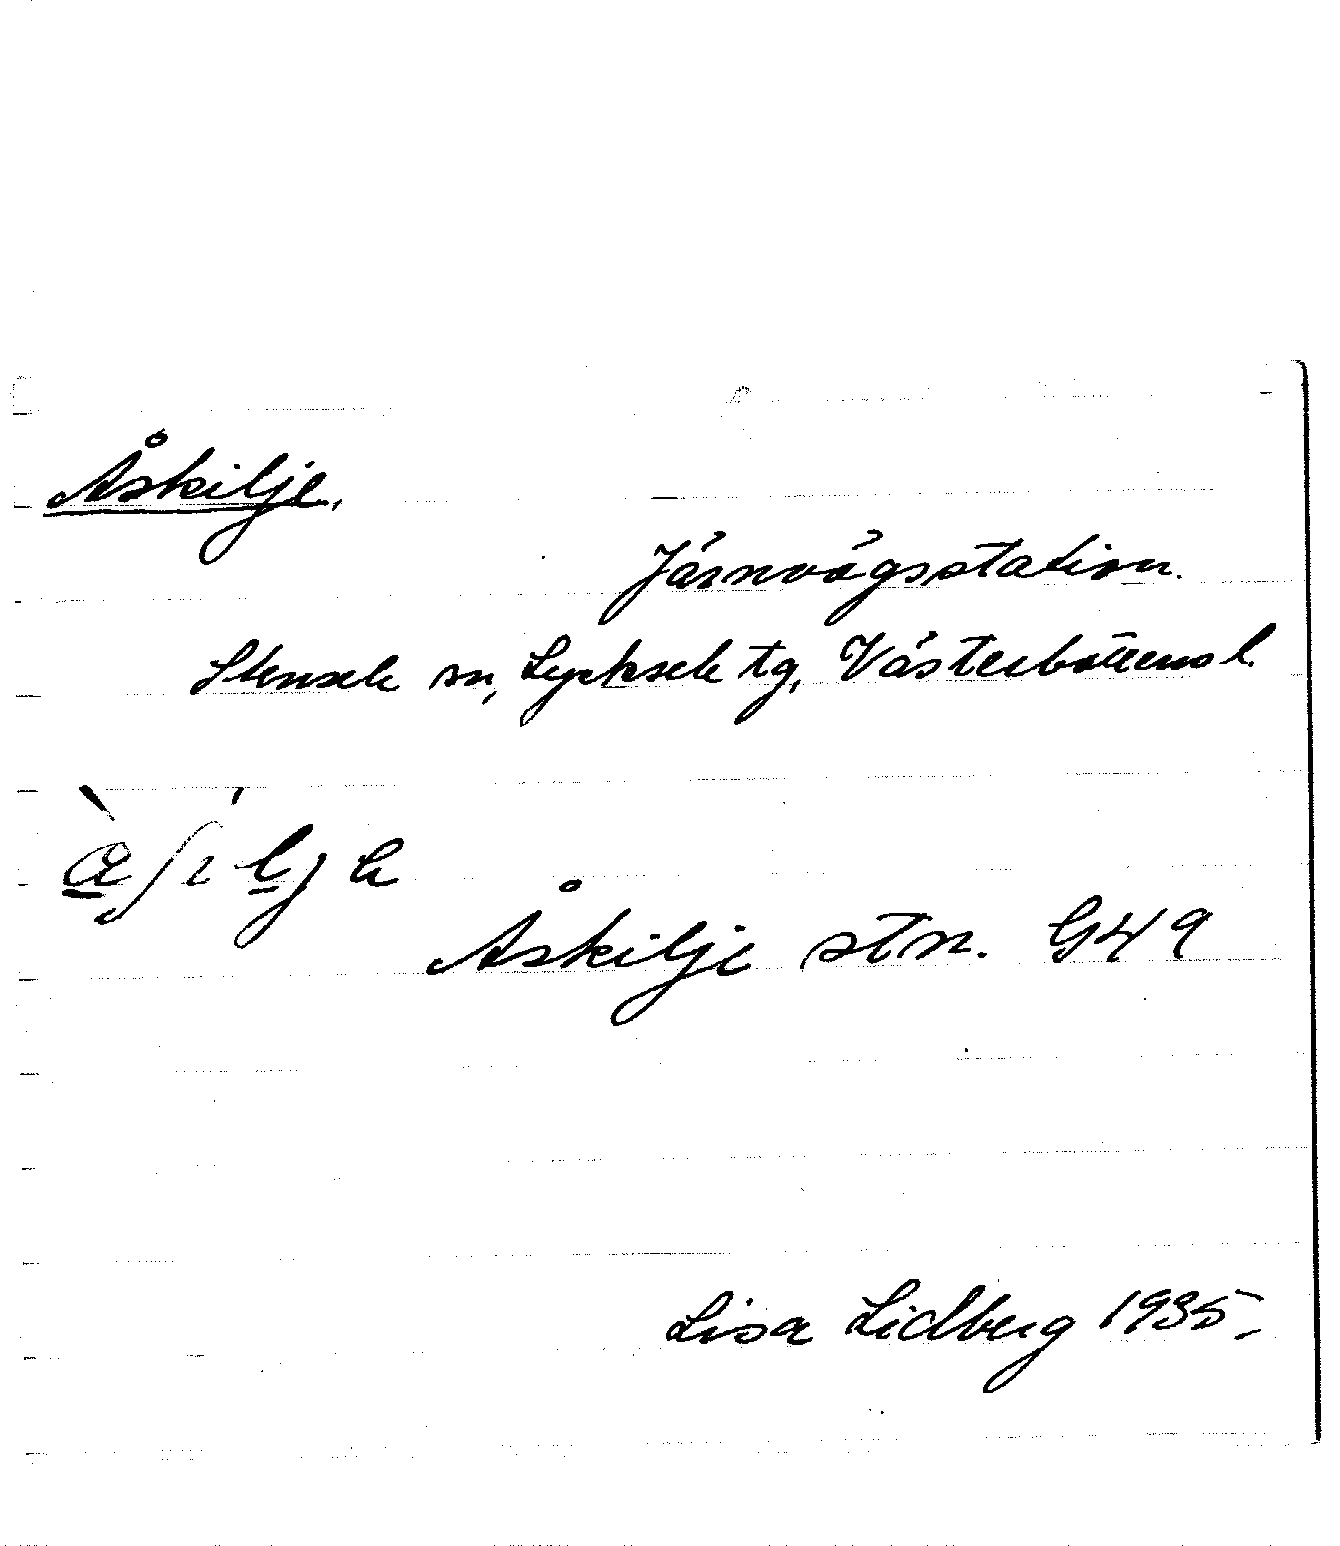 Åskilje.
Järnvägsstation.
Stensele sn, Lycksele tg, Västerbottens l.
Åskilje stn. G49
Lisa Lidberg 1935.